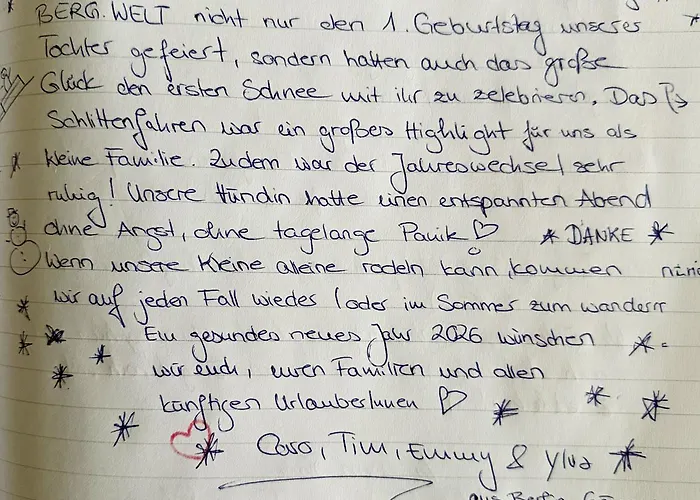 BERG.WELT nicht nur den 1. Geburtstag unserer
Tochter gefeiert, sondern hatten auch das große
Glück den ersten Schnee mit ihr zu zelebrieren. Das
Schlittenfahren war ein großes Highlight für uns als
kleine Familie. Zudem war der Jahreswechsel sehr
ruhig! Unsere Hündin hatte einen entspannten Abend
ohne Angst, ohne tagelange Panik! ♡ * DANKE *
Wenn unsere Kleine alleine rodeln kann, kommen
wir auf jeden Fall wieder (oder im Sommer zum wandern
Ein gesundes neues Jahr 2026 wünschen
wir euch, euren Familien und allen
künftigen UrlauberInnen ♡
Caro, Tim, Emmy & Ylva
aus Berlin